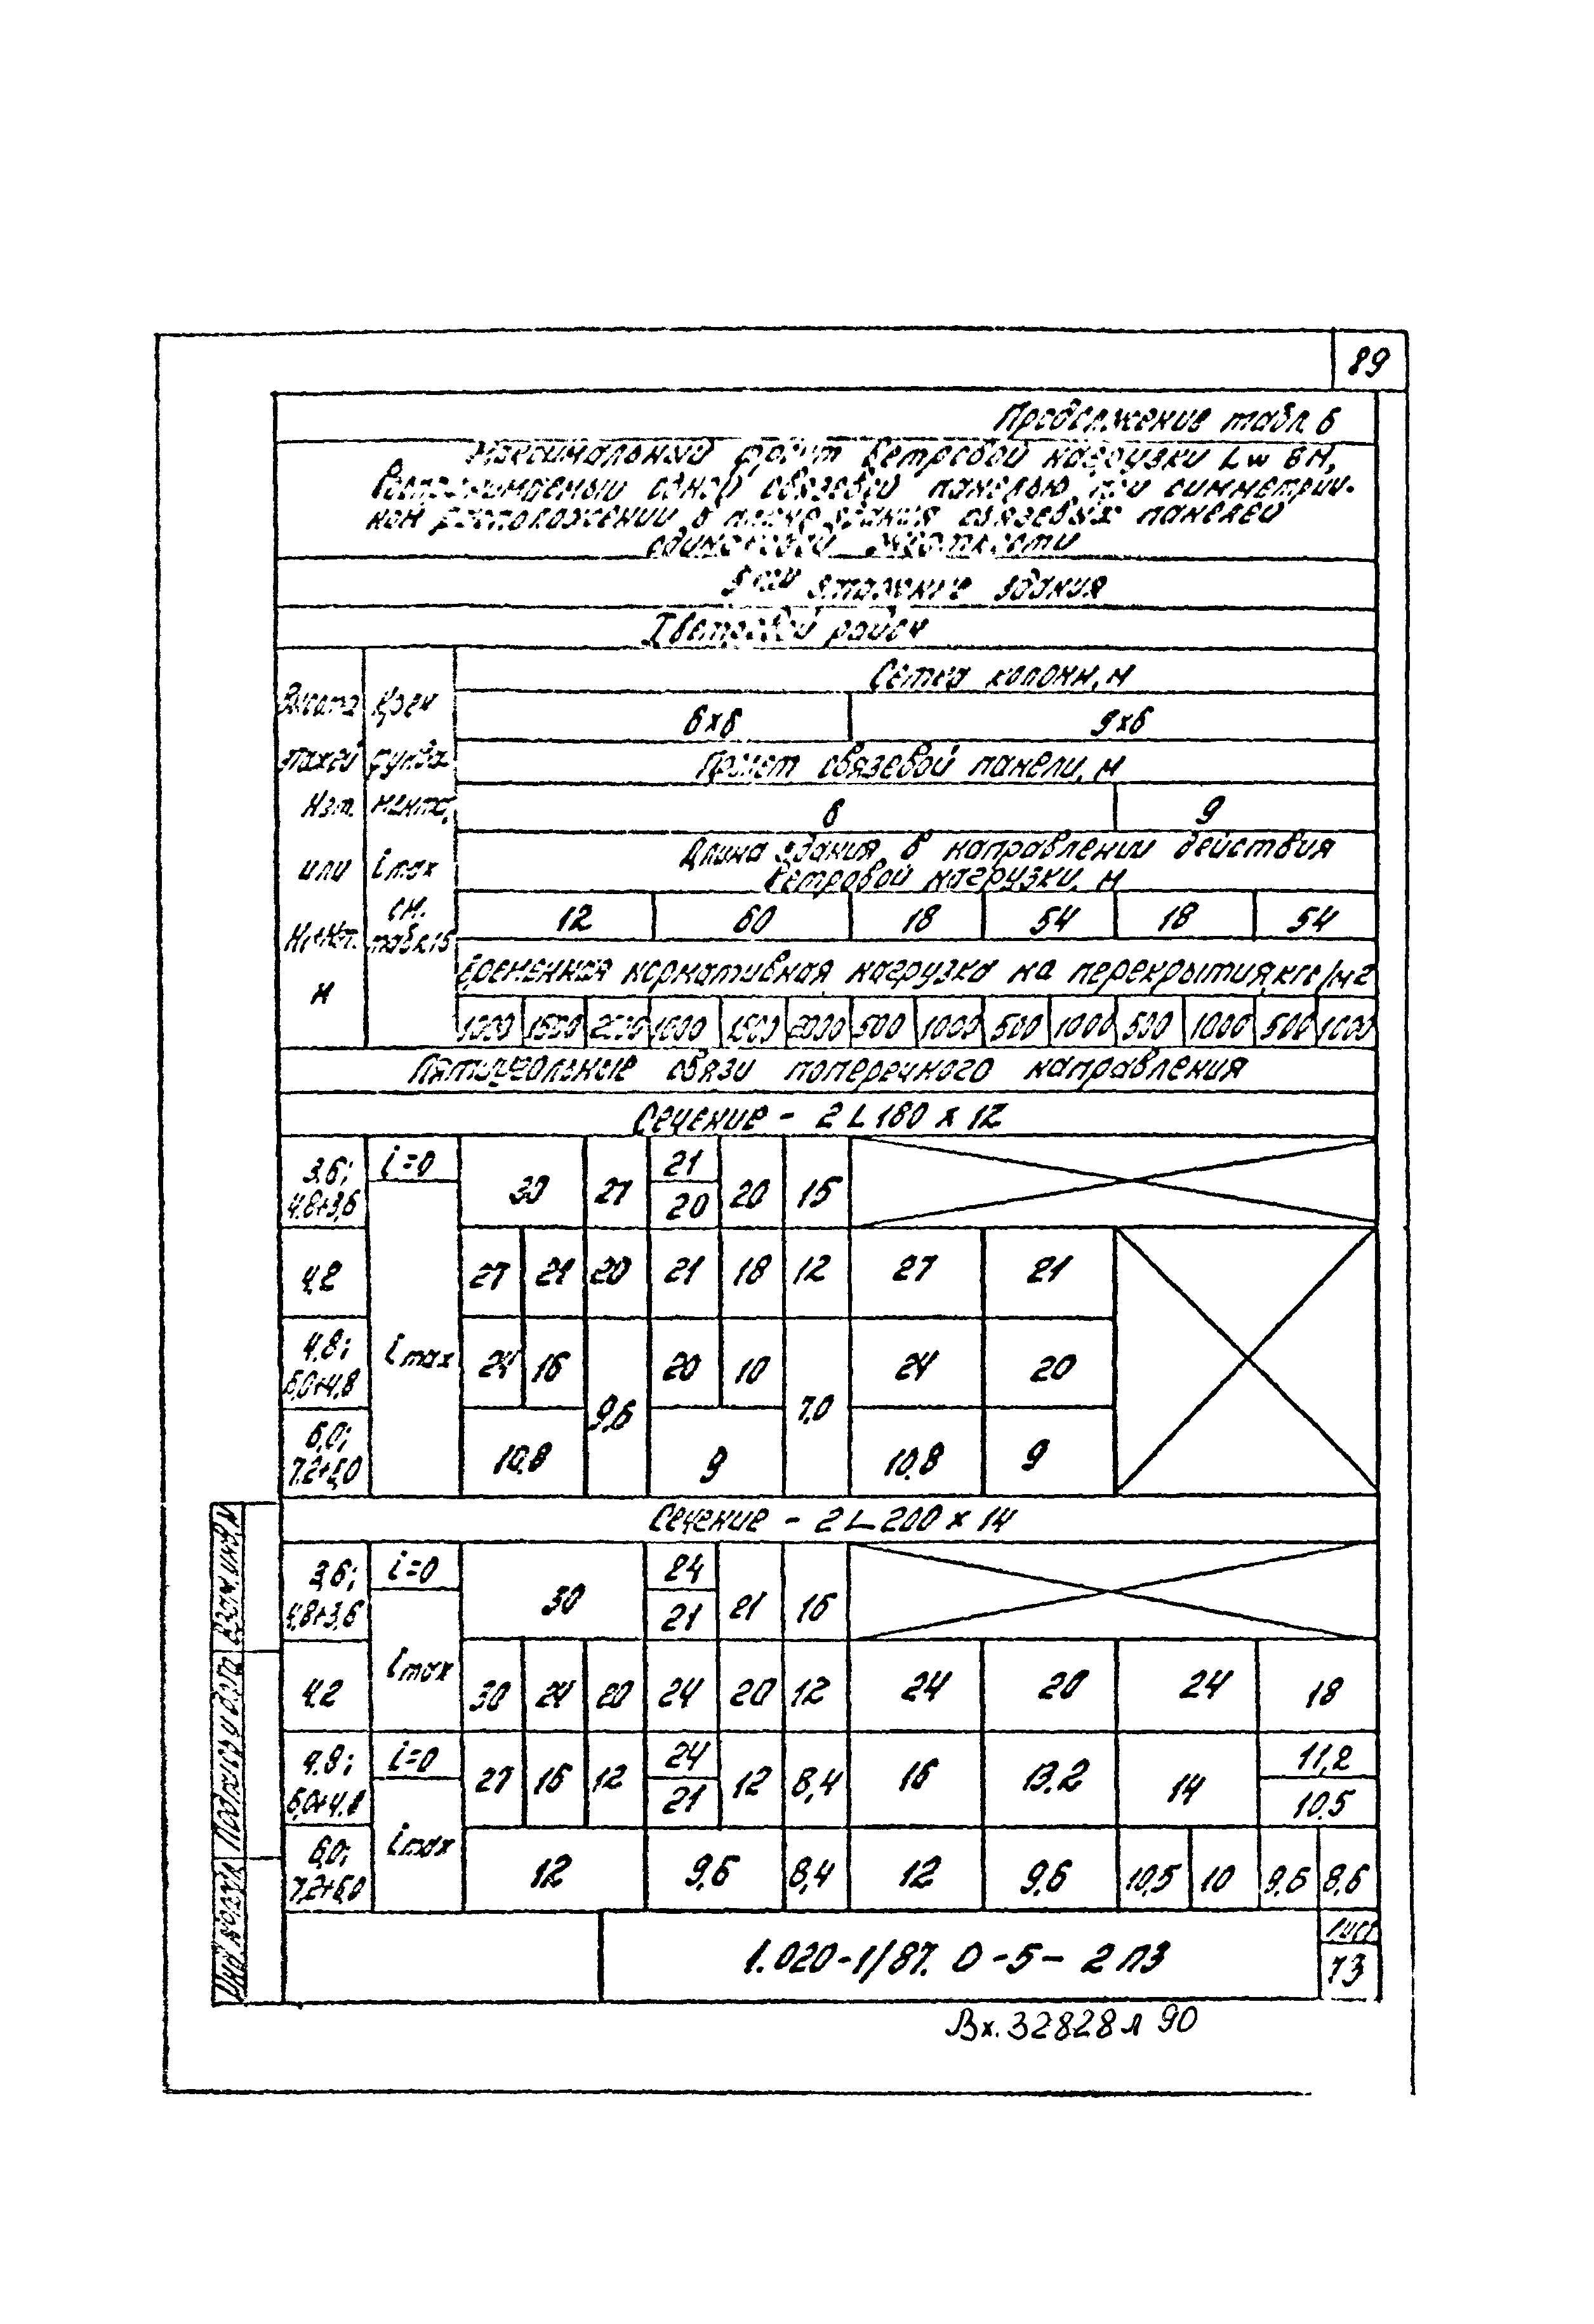 89
Продолжение табл. 6
Максимальный фронт ветровой нагрузки Lw в м,
воспринимаемый одной связевой панелью при симметрич-
ном расположении в плане здания связевых панелей
одинаковой жесткости
этажные здания
I ветровой район
Высота этажей Нэт. или Н1+Нэт. м
Крен фундамента, imax см. табл. 15
Сетка колонн, м
6х6 9х6
Пролет связевой панели, м
6 9
Длина здания в направлении действия
ветровой нагрузки, м
12 60 18 54 18 54
Временная нормативная нагрузка на перекрытия, кгс/м2
1000 1500 2000 1000 1500 2000 500 1000 500 1000 500 1000 500 1000
Пятиугольные связи поперечного направления
Сечение - 2 L 180 х 12
3,6; i=0 30 27 21 20 15
4,8+3,6 20
4,2 27 21 20 21 18 12 27 21
4,8; imax 24 16 9,6 20 10 7,0 24 20
6,0+4,8
6,0; 10,8 9 10,8 9
7,2+6,0
Сечение - 2 L 200 х 14
3,6; i=0 30 24 21 16
4,8+3,6 21
4,2 imax 30 24 20 24 20 12 24 20 24 18
4,8; i=0 27 16 12 24 12 8,4 16 13,2 14 11,2
6,0+4,8 21 10,5
6,0; imax 12 9,6 8,4 12 9,6 10,5 10 9,6 8,6
7,2+6,0
Взам. инв. №
Подпись и дата
Инв. № подл.
1.020-1/87. 0-5-2 ПЗ
Лист
73
Вх. 32828 л 90